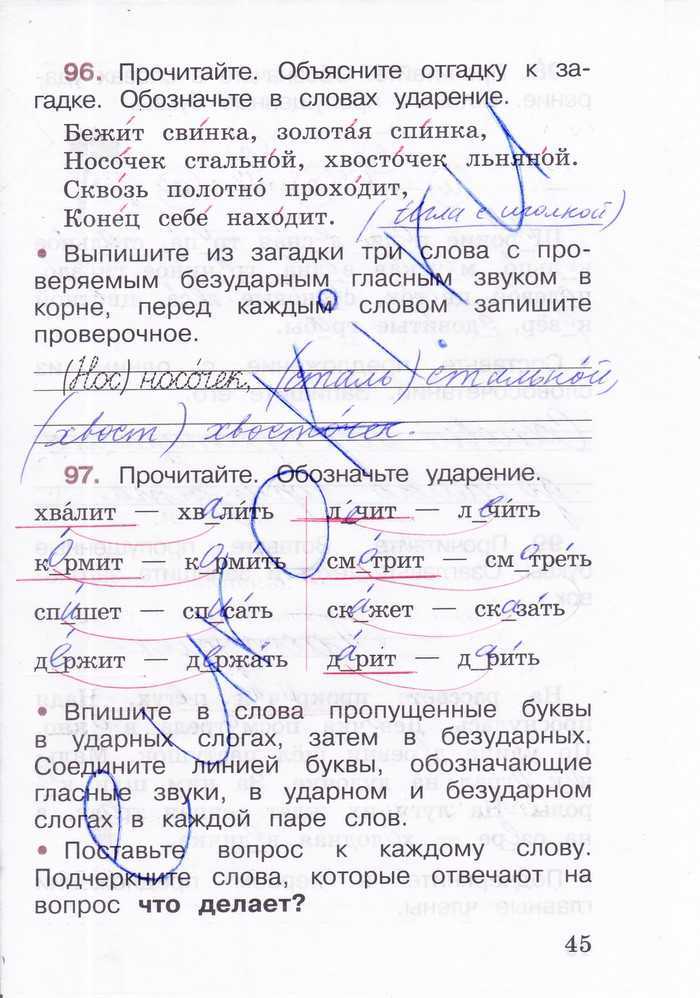 96. Прочитайте. Объясните отгадку к за-
гадке. Обозначьте в словах ударение.
Бежи́т сви́нка, золота́я спи́нка,
Носо́чек стально́й, хвосто́чек льняно́й.
Сквозь полотно́ прохо́дит,
Коне́ц себе́ нахо́дит. (Игла с иголкой)
• Выпишите из загадки три слова с про-
веряемым безударным гласным звуком в
корне, перед каждым словом запишите
проверочное.
(Нос) носо́чек, (сталь) стально́й,
(хвост) хвосто́чек.
97. Прочитайте. Обозначьте ударение.
хва́лит — хвали́ть ле́чит — лечи́ть
ко́рмит корми́ть смо́трит смотре́ть
спи́шет — списа́ть ска́жет — сказа́ть
де́ржит — держа́ть да́рит — дари́ть
• Впишите в слова пропущенные буквы
в ударных слогах, затем в безударных.
Соедините линией буквы, обозначающие
гласные звуки, в ударном и безударном
слогах в каждой паре слов.
• Поставьте вопрос к каждому слову.
Подчеркните слова, которые отвечают на
вопрос что делает?
45